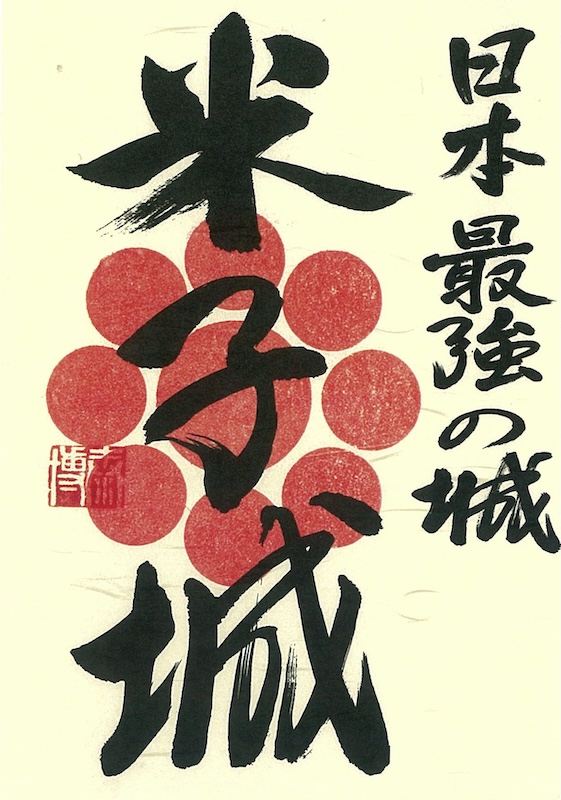 日本最強の城
米子城